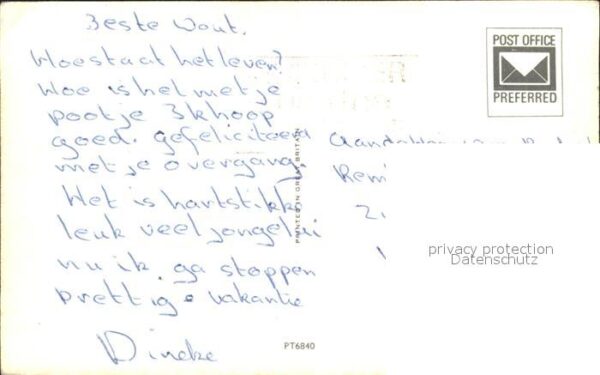 Beste Wout.
Hoe staat het leven?
Hoe is het met je
pootje Ik hoop
goed. gefeliciteerd
met je overgang.
Het is hartstikke
leuk veel jongelui
nu ik ga stoppen
prettige vakantie
Dineke
POST OFFICE
PREFERRED
PRINTED IN GREAT BRITAIN
privacy protection
Datenschutz
PT6840